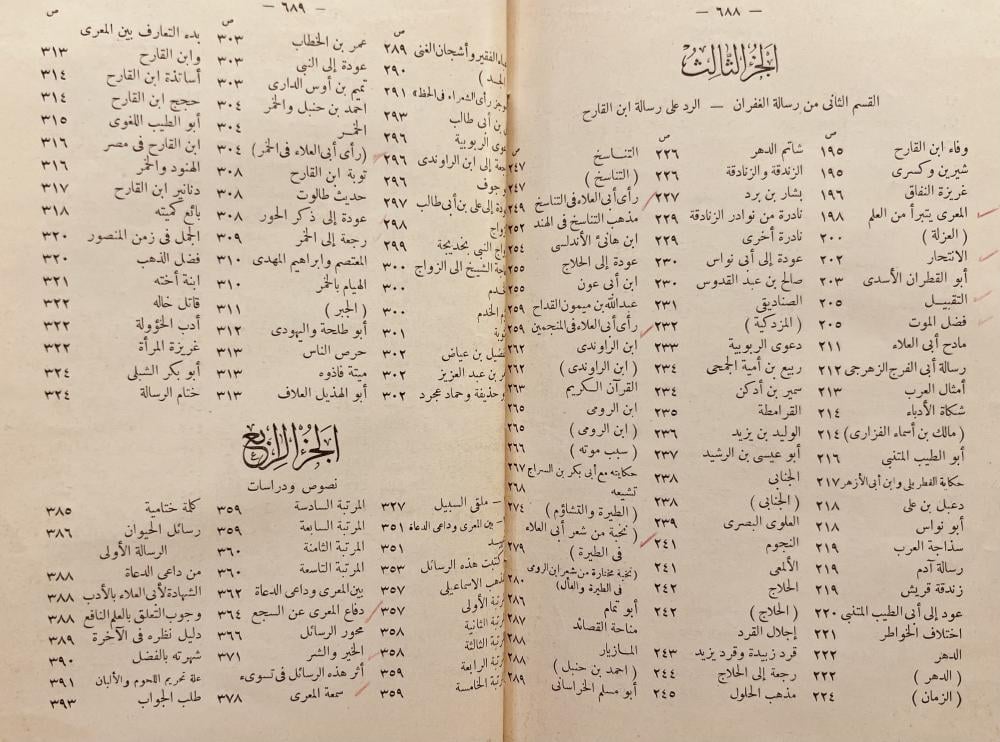 — ٦٨٨ —
الجزء الثالث
القسم الثانى من رسالة الغفران — الرد على رسالة ابن القارح
ص
وفاء ابن القارح ١٩٥
شيرين وكسرى ١٩٥
غريزة النفاق ١٩٦
المعرى يتبرأ من العلم ١٩٨
( العزلة ) ٢٠٠
الانتحار ٢٠٢
أبو القطران الأسدى ٢٠٣
التقبيل ٢٠٥
فضل الموت ٢٠٥
مادح أبى العلاء ٢١١
رسالة أبى الفرج الزهرجى ٢١٢
أمثال العرب ٢١٣
شكاة الأدباء ٢١٤
( مالك بن أسماء الفزارى ) ٢١٤
أبو الطيب المتنبى ٢١٦
حكاية القطربلى وابن أبى الأزهر ٢١٧
دعبل بن على ٢١٨
أبو نواس ٢١٨
سذاجة العرب ٢١٩
رسالة آدم ٢١٩
زندقة قريش ٢١٩
عود إلى أبى الطيب المتنبى ٢٢٠
اختلاف الخواطر ٢٢١
الدهر ٢٢٢
( الدهر ) ٢٢٢
( الزمان ) ٢٢٤
ص
شاتم الدهر ٢٢٦
الزندقة والزنادقة ٢٢٦
بشار بن برد ٢٢٧
نادرة من نوادر الزنادقة ٢٢٩
نادرة أخرى ٢٢٩
عودة إلى أبى نواس ٢٣٠
صالح بن عبد القدوس ٢٣٠
الصناديقى ٢٣١
( المزدكية ) ٢٣٢
دعوى الربوبية ٢٣٣
ربيع بن أمية الجمحى ٢٣٤
سمير بن أدكن ٢٣٤
القرامطة ٢٣٥
الوليد بن يزيد ٢٣٦
أبو عيسى بن الرشيد ٢٣٧
الجنابى ٢٣٨
( الجنابى ) ٢٣٨
العلوى البصرى ٢٣٩
النجوم ٢٤١
الألمعى ٢٤١
الحلاج ٢٤٢
( الحلاج ) ٢٤٢
إجلال القرد
قرد زبيدة وقرد يزيد ٢٤٣
رجعة إلى الحلاج ٢٤٤
مذهب الحلول ٢٤٥
ص
التناسخ ٢٤٧
( التناسخ ) ٢٤٧
رأى أبى العلاء فى التناسخ ٢٤٩
مذهب التناسخ فى الهند ٢٥٢
ابن هانئ الأندلسى ٢٥٤
عودة إلى الحلاج ٢٥٥
ابن أبى عون ٢٥٥
عبدالله بن ميمون القداح ٢٥٩
رأى أبى العلاء فى المنجمين ٢٥٩
ابن الراوندى ٢٦٢
( ابن الراوندى ) ٢٦٢
القرآن الكريم ٢٦٣
ابن الرومى ٢٦٥
( ابن الرومى ) ٢٦٥
( سبب موته ) ٢٦٦
حكايته مع أبى بكر بن السراج ٢٦٧
تشيعه ٢٦٨
( الطيرة والتشاؤم ) ٢٧٤
( نخبة من شعر أبى العلاء
فى الطيرة ) ٢٧٩
( نخبة مختارة من شعر ابن الرومى
فى الطيرة والفأل ) ٢٨٠
أبو تمام ٢٨٦
مناحة القصائد ٢٨٧
المازيار ٢٨٨
( احمد بن حنبل ) ٢٨٨
أبو مسلم الخراسانى ٢٨٩
— ٦٨٩ —
ص
الفقير وأشجان الغنى ٢٨٩
٢٩٠
رأى الشعراء فى الحظ » ٢٩١
بن أبى طالب ٢٩٣
الربوبية ٢٩٦
إلى ابن الراوندى ٢٩٦
٢٩٦
إلى على بن أبى طالب ٢٩٧
٢٩٨
النبى بخديجة ٢٩٩
الشيخ الى الزواج ٣٠٠
٣٠٠
الخدم ٣٠٠
٣٠١
بن عياض ٣٠٢
بن عبد العزيز ٣٠٢
وحذيفة وحماد عجرد ٣٠٢
ص
عمر بن الخطاب ٣٠٣
عودة إلى النبى ٣٠٣
تميم بن أوس الدارى ٣٠٣
احمد بن حنبل والخمر ٣٠٤
الخمر ٣٠٤
( رأى أبى العلاء فى الخمر ) ٣٠٤
توبة ابن القارح ٣٠٨
حديث طالوت ٣٠٨
عودة إلى ذكر الحور ٣٠٨
رجعة إلى الخمر ٣٠٩
المعتصم وابراهيم المهدى ٣١٠
الهيام بالخمر ٣١٠
( الجبر ) ٣١١
أبو طلحة واليهودى ٣١٢
حرص الناس ٣١٣
ميتة فاذوه ٣١٣
أبو الهذيل العلاف ٣١٣
ص
بدء التعارف بين المعرى
وابن القارح ٣١٣
أساتذة ابن القارح ٣١٤
حجج ابن القارح ٣١٤
أبو الطيب اللغوى ٣١٥
ابن القارح فى مصر ٣١٦
الهنود والخمر ٣١٦
دنانير ابن القارح ٣١٧
بائع كميته ٣١٨
الجمل فى زمن المنصور ٣٢٠
فضل الذهب ٣٢٠
ابنة أخته ٣٢١
قاتل خاله ٣٢٢
أدب الخؤولة ٣٢٢
غريزة المرأة ٣٢٢
أبو بكر الشبلى ٣٢٤
ختام الرسالة ٣٢٤
الجزء الرابع
نصوص ودراسات
– ملقى السبيل ٣٢٧
– بين المعرى وداعى الدعاة ٣٥١
٣٥١
كتبت هذه الرسائل ٣٥٣
الإسماعيلى ٣٥٧
الأولى ٣٥٧
الثانية ٣٥٨
الثالثة ٣٥٨
الرابعة ٣٥٩
الخامسة ٣٥٩
المرتبة السادسة ٣٥٩
المرتبة السابعة ٣٥٩
المرتبة الثامنة ٣٦٠
المرتبة التاسعة ٣٦٠
بين المعرى وداعى الدعاة ٣٦٢
دفاع المعرى عن السجع ٣٦٤
محور الرسائل ٣٦٦
الخير والشر ٣٧١
أثر هذه الرسائل فى تسوىء
سمعة المعرى ٣٧٨
كلمة ختامية ٣٨٥
رسائل الحيوان ٣٨٦
الرسالة الأولى
من داعى الدعاة ٣٨٨
الشهادة لأبى العلاء بالأدب ٣٨٨
وجوب التعلق بالعلم النافع ٣٨٨
دليل نظره فى الآخرة ٣٨٩
شهرته بالفضل ٣٩٠
علة تحريم اللحوم والألبان ٣٩١
طلب الجواب ٣٩٣